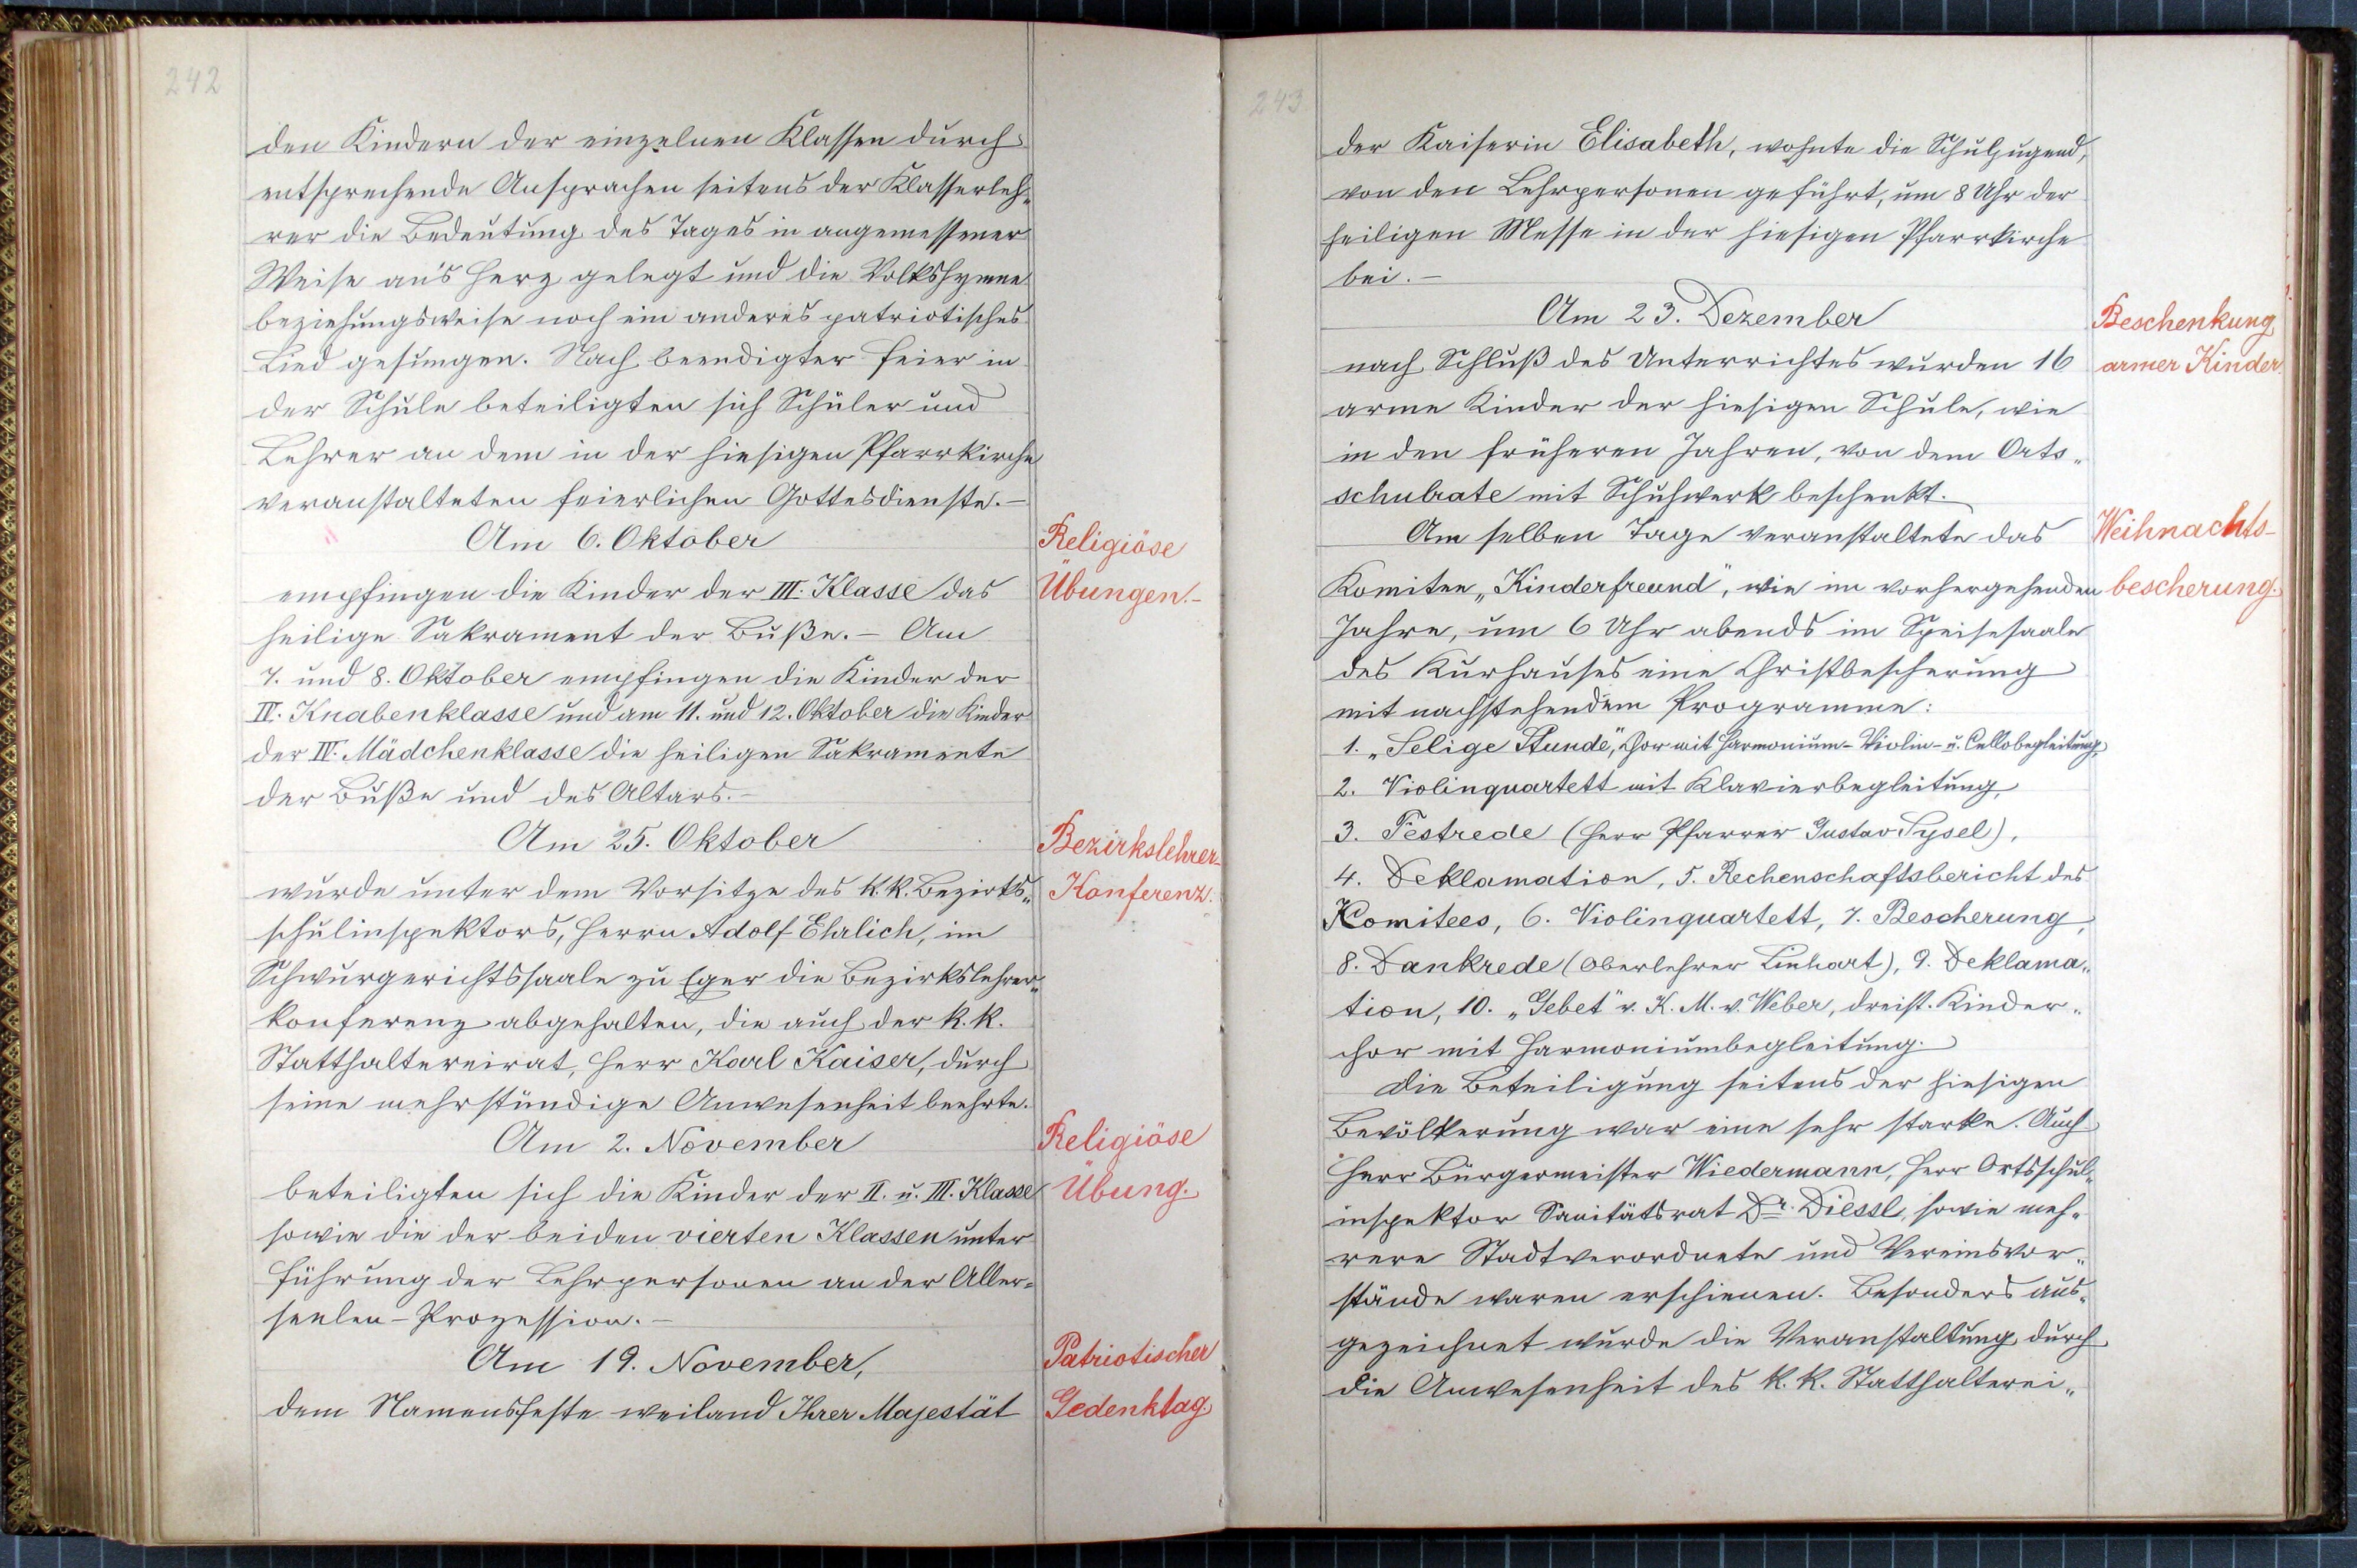 242
den Kindern der einzelnen Klassen durch
entsprechende Ansprachen seitens der Klassenleh-
rer die Bedeutung des Tages in angemessener
Weise ans Herz gelegt und die Volkshymne
beziehungsweise noch ein anderes patriotisches
Lied gesungen. Nach beendigter Feier in
der Schule beteiligten sich Schüler und
Lehrer an dem in der hiesigen Pfarrkirche
veranstalteten feierlichen Gottesdienste.-
Am 6. Oktober
Religiöse
Übungen.-
empfingen die Kinder der III. Klasse das
heilige Sakrament der Buße.- Am
7. und 8. Oktober empfingen die Kinder der
IV. Knabenklasse und am 11. und 12. Oktober die Kinder
der IV. Mädchenklasse die heiligen Sakramente
der Buße und des Altars.-
Am 25. Oktober
Bezirkslehrer-
Konferenz.
wurde unter dem Vorsitze des k.k. Bezirks-
schulinspektors, Herrn Adolf Ehrlich, im
Schwurgerichtssaale zu Eger die Bezirkslehrer-
konferenz abgehalten, die auch der k.k.
Statthaltereirat, Herr Karl Kaiser, durch
seine mehrstündige Anwesenheit beehrte.
Am 2. November
Religiöse
Übung.
beteiligten sich die Kinder der II. u. III. Klasse
sowie die der beiden vierten Klassen unter
Führung der Lehrpersonen an der Aller-
seelen-Prozession.-
Am 19. November,
Patriotischer
Gedenktag.
dem Namensfeste weiland Ihrer Majestät
243
der Kaiserin Elisabeth, wohnte die Schuljugend,
von den Lehrpersonen geführt, um 8 Uhr der
heiligen Messe in der hiesigen Pfarrkirche
bei.-
Am 23. Dezember
Beschenkung
armer Kinder.
nach Schluß des Unterrichtes wurden 16
arme Kinder der hiesigen Schule, wie
in den früheren Jahren, von dem Orts-
schulrate mit Schuhwerk beschenkt.
Am selben Tage veranstaltete das
Weihnachts-
bescherung.
Komitee „Kinderfreund", wie im vorhergehenden
Jahre, um 6 Uhr abends im Speisesaale
des Kurhauses eine Christbescherung
mit nachstehendem Programme:
1. „Selige Stunde", Chor mit Harmonium- Violin- u. Cellobegleitung,
2. Violinquartett mit Klavierbegleitung,
3. Festrede (Herr Pfarrer Gustav Tysel),
4. Deklamation, 5. Rechenschaftsbericht des
Komitees, 6. Violinquartett, 7. Bescherung,
8. Dankrede (Oberlehrer Linhart), 9. Deklama-
tion, 10. „Gebet" v. K. M. v. Weber, dreist. Kinder-
chor mit Harmoniumbegleitung.
Die Beteiligung seitens der hiesigen
Bevölkerung war eine sehr starke. Auch
Herr Bürgermeister Wiedermann, Herr Ortsschul-
inspektor Sanitätsrat Dr. Diessl, sowie meh-
rere Stadtverordnete und Vereinsvor-
stände waren erschienen. Besonders aus-
gezeichnet wurde die Veranstaltung durch
die Anwesenheit des k.k. Statthalterei-